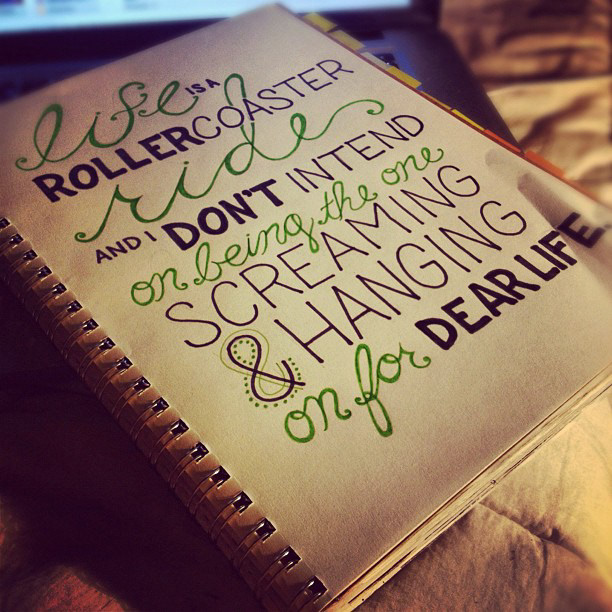 life IS A
ROLLERCOASTER
ride
AND I DON'T INTEND
on being the one
SCREAMING
& HANGING
on for DEAR LIFE.